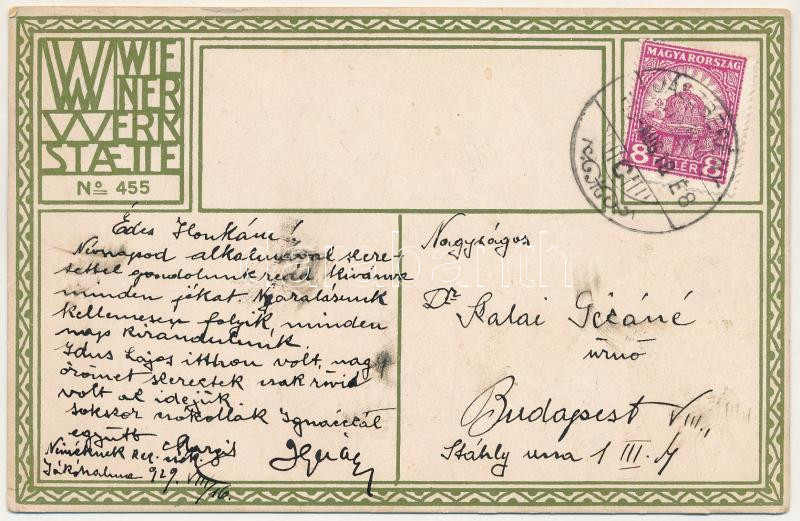 WIENER
WERK
STAETTE
No 455
MAGYARORSZÁG
8 FILLÉR 8
Édes Ilonkám!
Névnapod alkalmával szere-
tettel gondolunk reád Kivánva
minden jókat. Nyaralásunk
kellemesen folyik, minden
nap kirándulunk.
Idus Lajos itthon volt, nagy
örömet szereztek csak rövid
volt az idejük
sokszor csókollák Ignáccal
együtt Margit
Ignác
Jákóhalma 929. VIII/16.
Nagyságos
Dr. Kalai Gézáné
úrnő
Budapest VIII.
Stáhly ucca 1 III. 4
darabanth